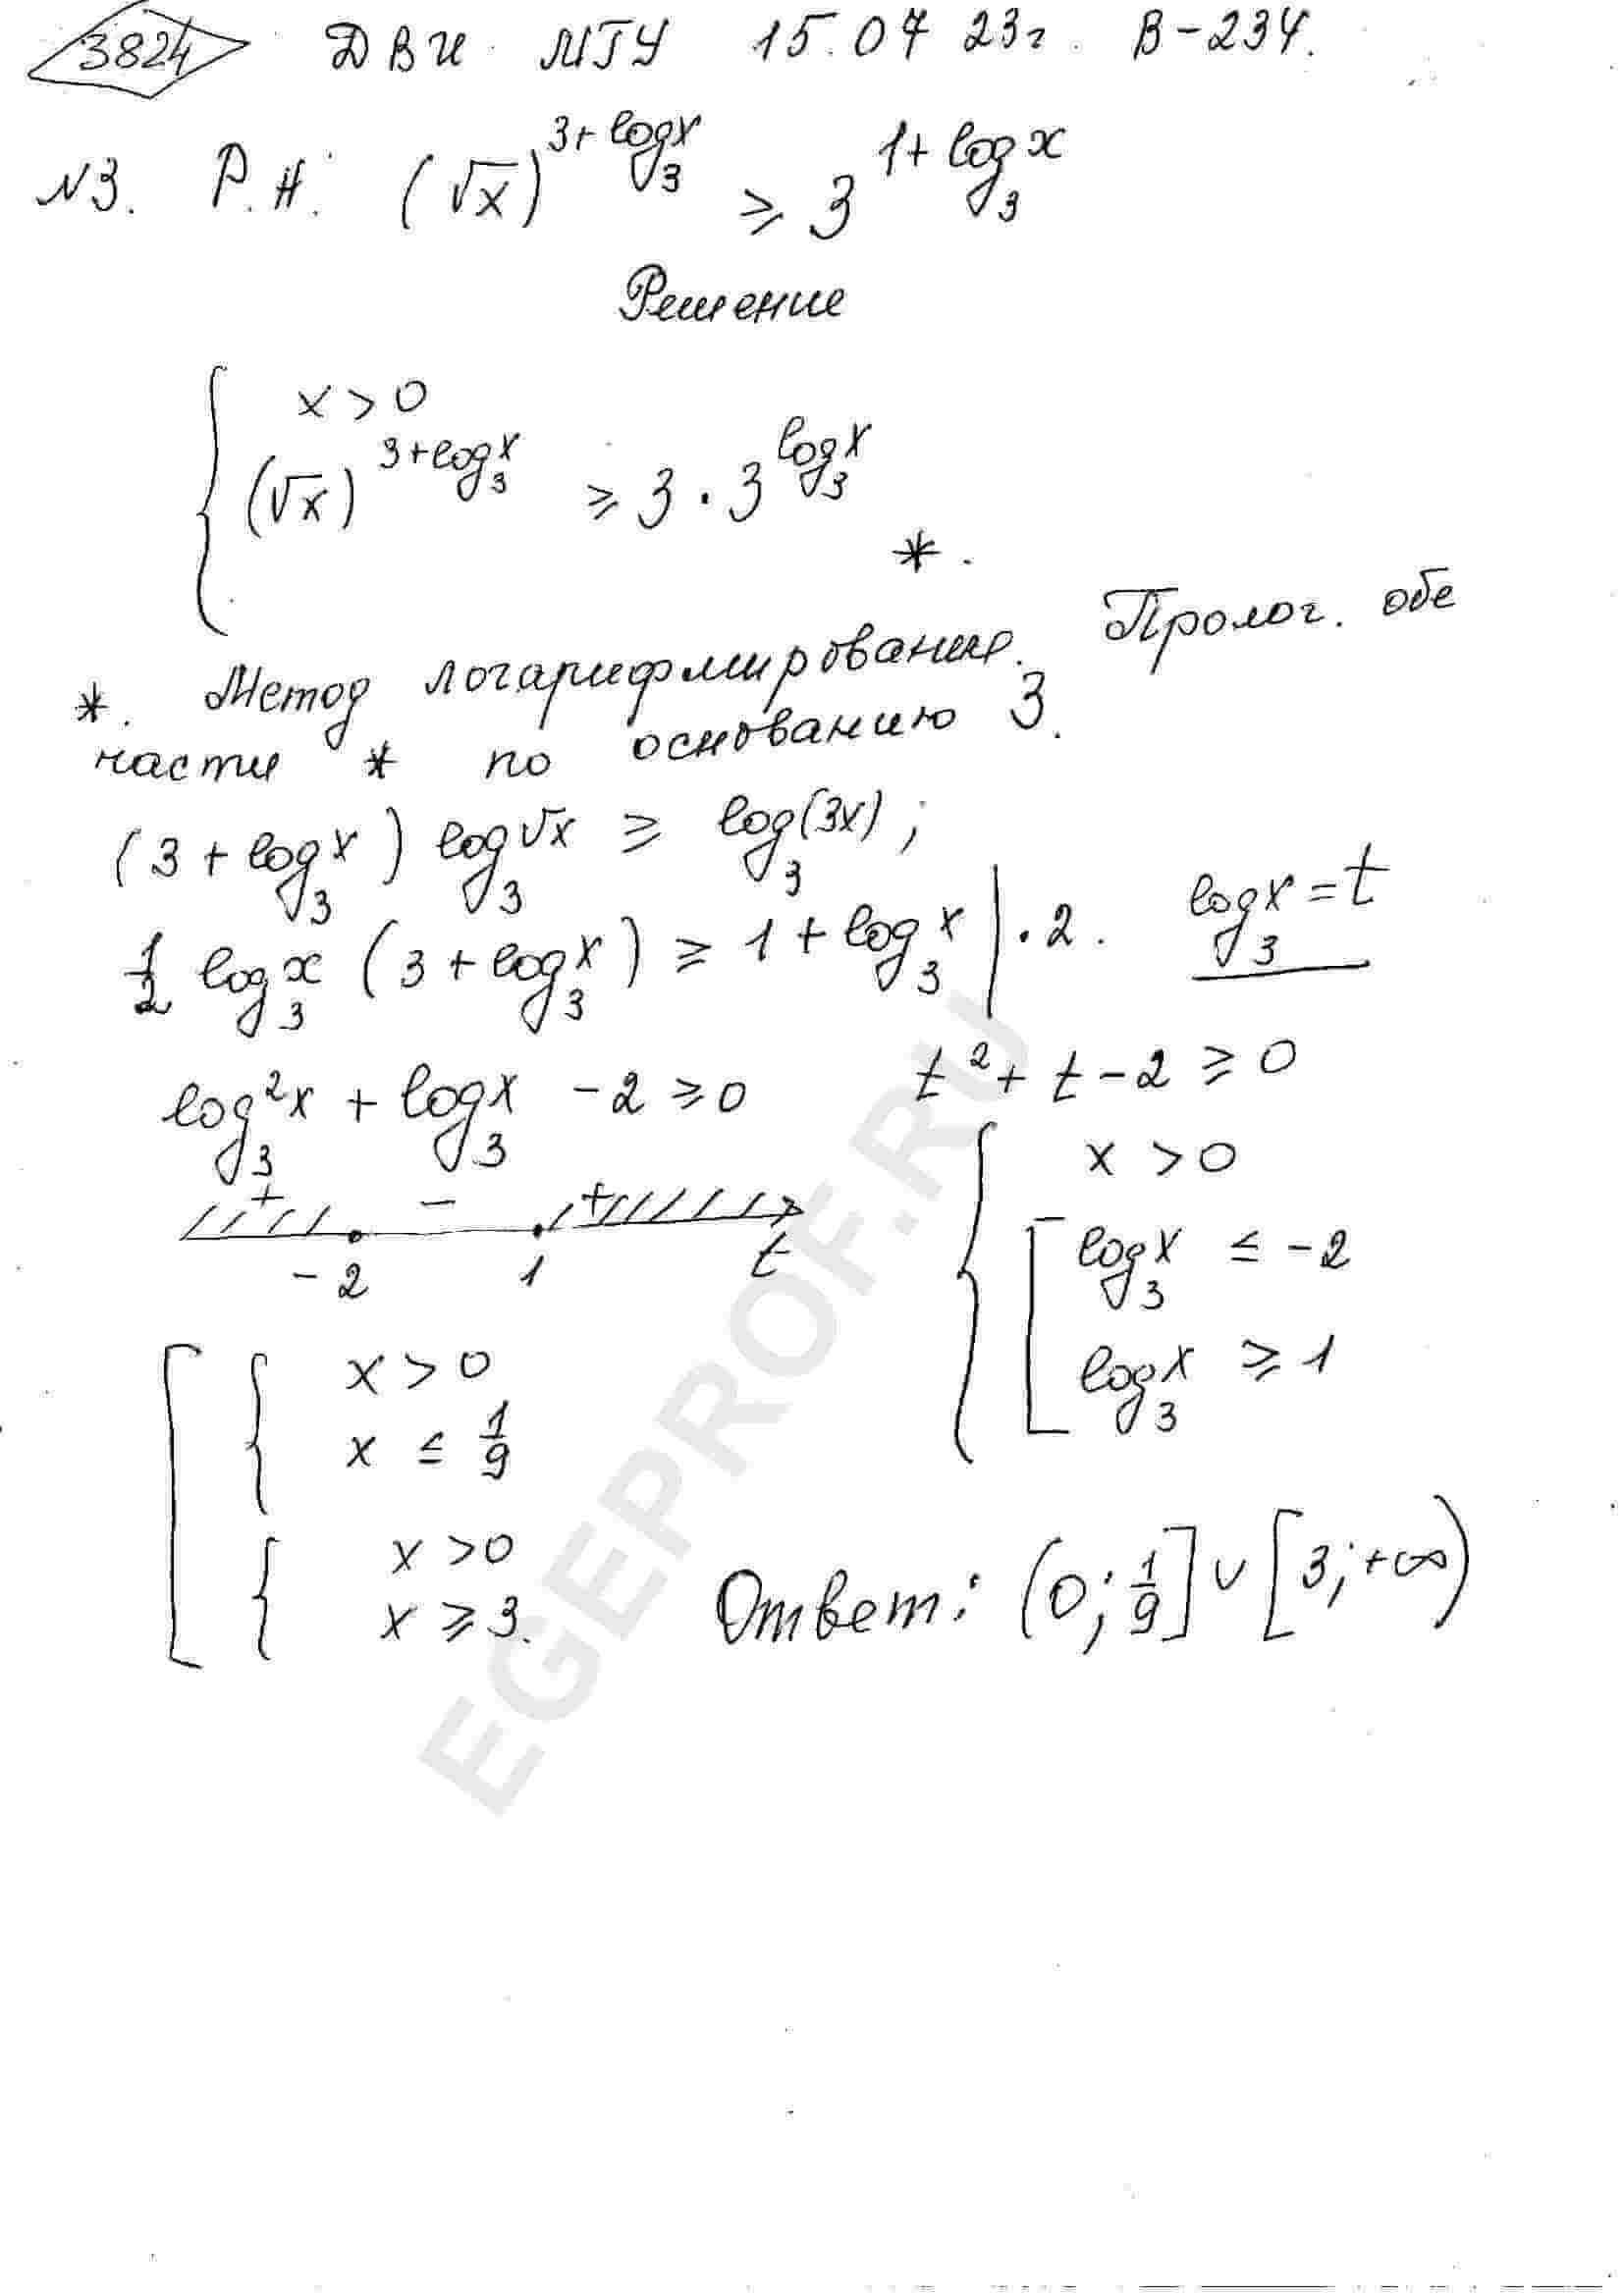 3824 ДВИ МГУ 15.07 23г. В-234.
№3. Р.Н: (√x)^(3+log₃x) ≥ 3^(1+log₃x)
Решение
x > 0
(√x)^(3+log₃x) ≥ 3 · 3^(log₃x) *.
*. Метод логарифмирования. Пролог. обе
части * по основанию 3.
(3 + log₃x) log₃√x ≥ log₃(3x);
½ log₃x (3 + log₃x) ≥ 1 + log₃x | · 2. log₃x = t
log₃²x + log₃x - 2 ≥ 0 t² + t - 2 ≥ 0
+ - +
-2 1 t
x > 0
log₃x ≤ -2
log₃x ≥ 1
x > 0
x ≤ 1/9
x > 0
x ≥ 3.
Ответ: (0; 1/9] ∪ [3; +∞)
EGEPROF.RU